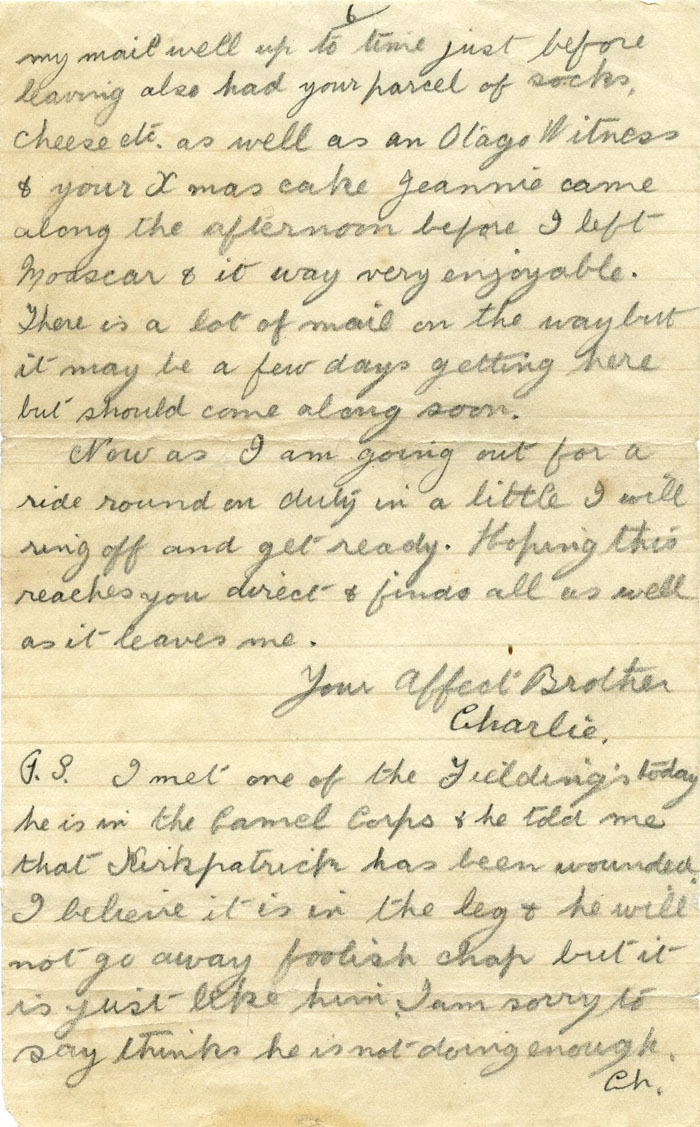 6
my mail well up to time just before
leaving also had your parcel of socks,
cheese etc. as well as an Otago Witness
& your Xmas cake Jeannie came
along the afternoon before I left
Moascar & it way very enjoyable.
There is a lot of mail on the way but
it may be a few days getting here
but should come along soon.
Now as I am going out for a
ride round on duty in a little I will
ring off and get ready. Hoping this
reaches you direct & finds all as well
as it leaves me.
Your Affect Brother
Charlie.
P.S. I met one of the Fielding's today
he is in the Camel Corps & he told me
that Kirkpatrick has been wounded.
I believe it is in the leg & he will
not go away foolish chap but it
is just like him. I am sorry to
say thinks he is not doing enough.
Ch.